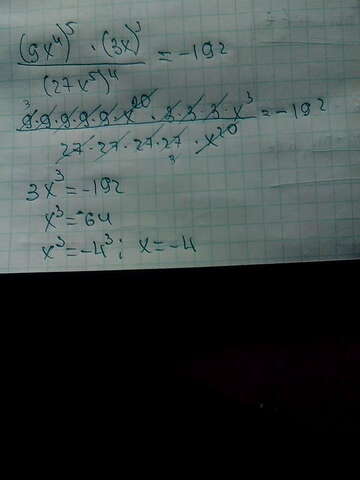 (9x⁴)⁵ · (3x)³ / (27x⁵)⁴ = -192
³9·9·9·9·9·x²⁰·3·3·3·x³ / 27·27·27·27₃·x²⁰ = -192
3x³=-192
x³=-64
x³=-4³; x=-4